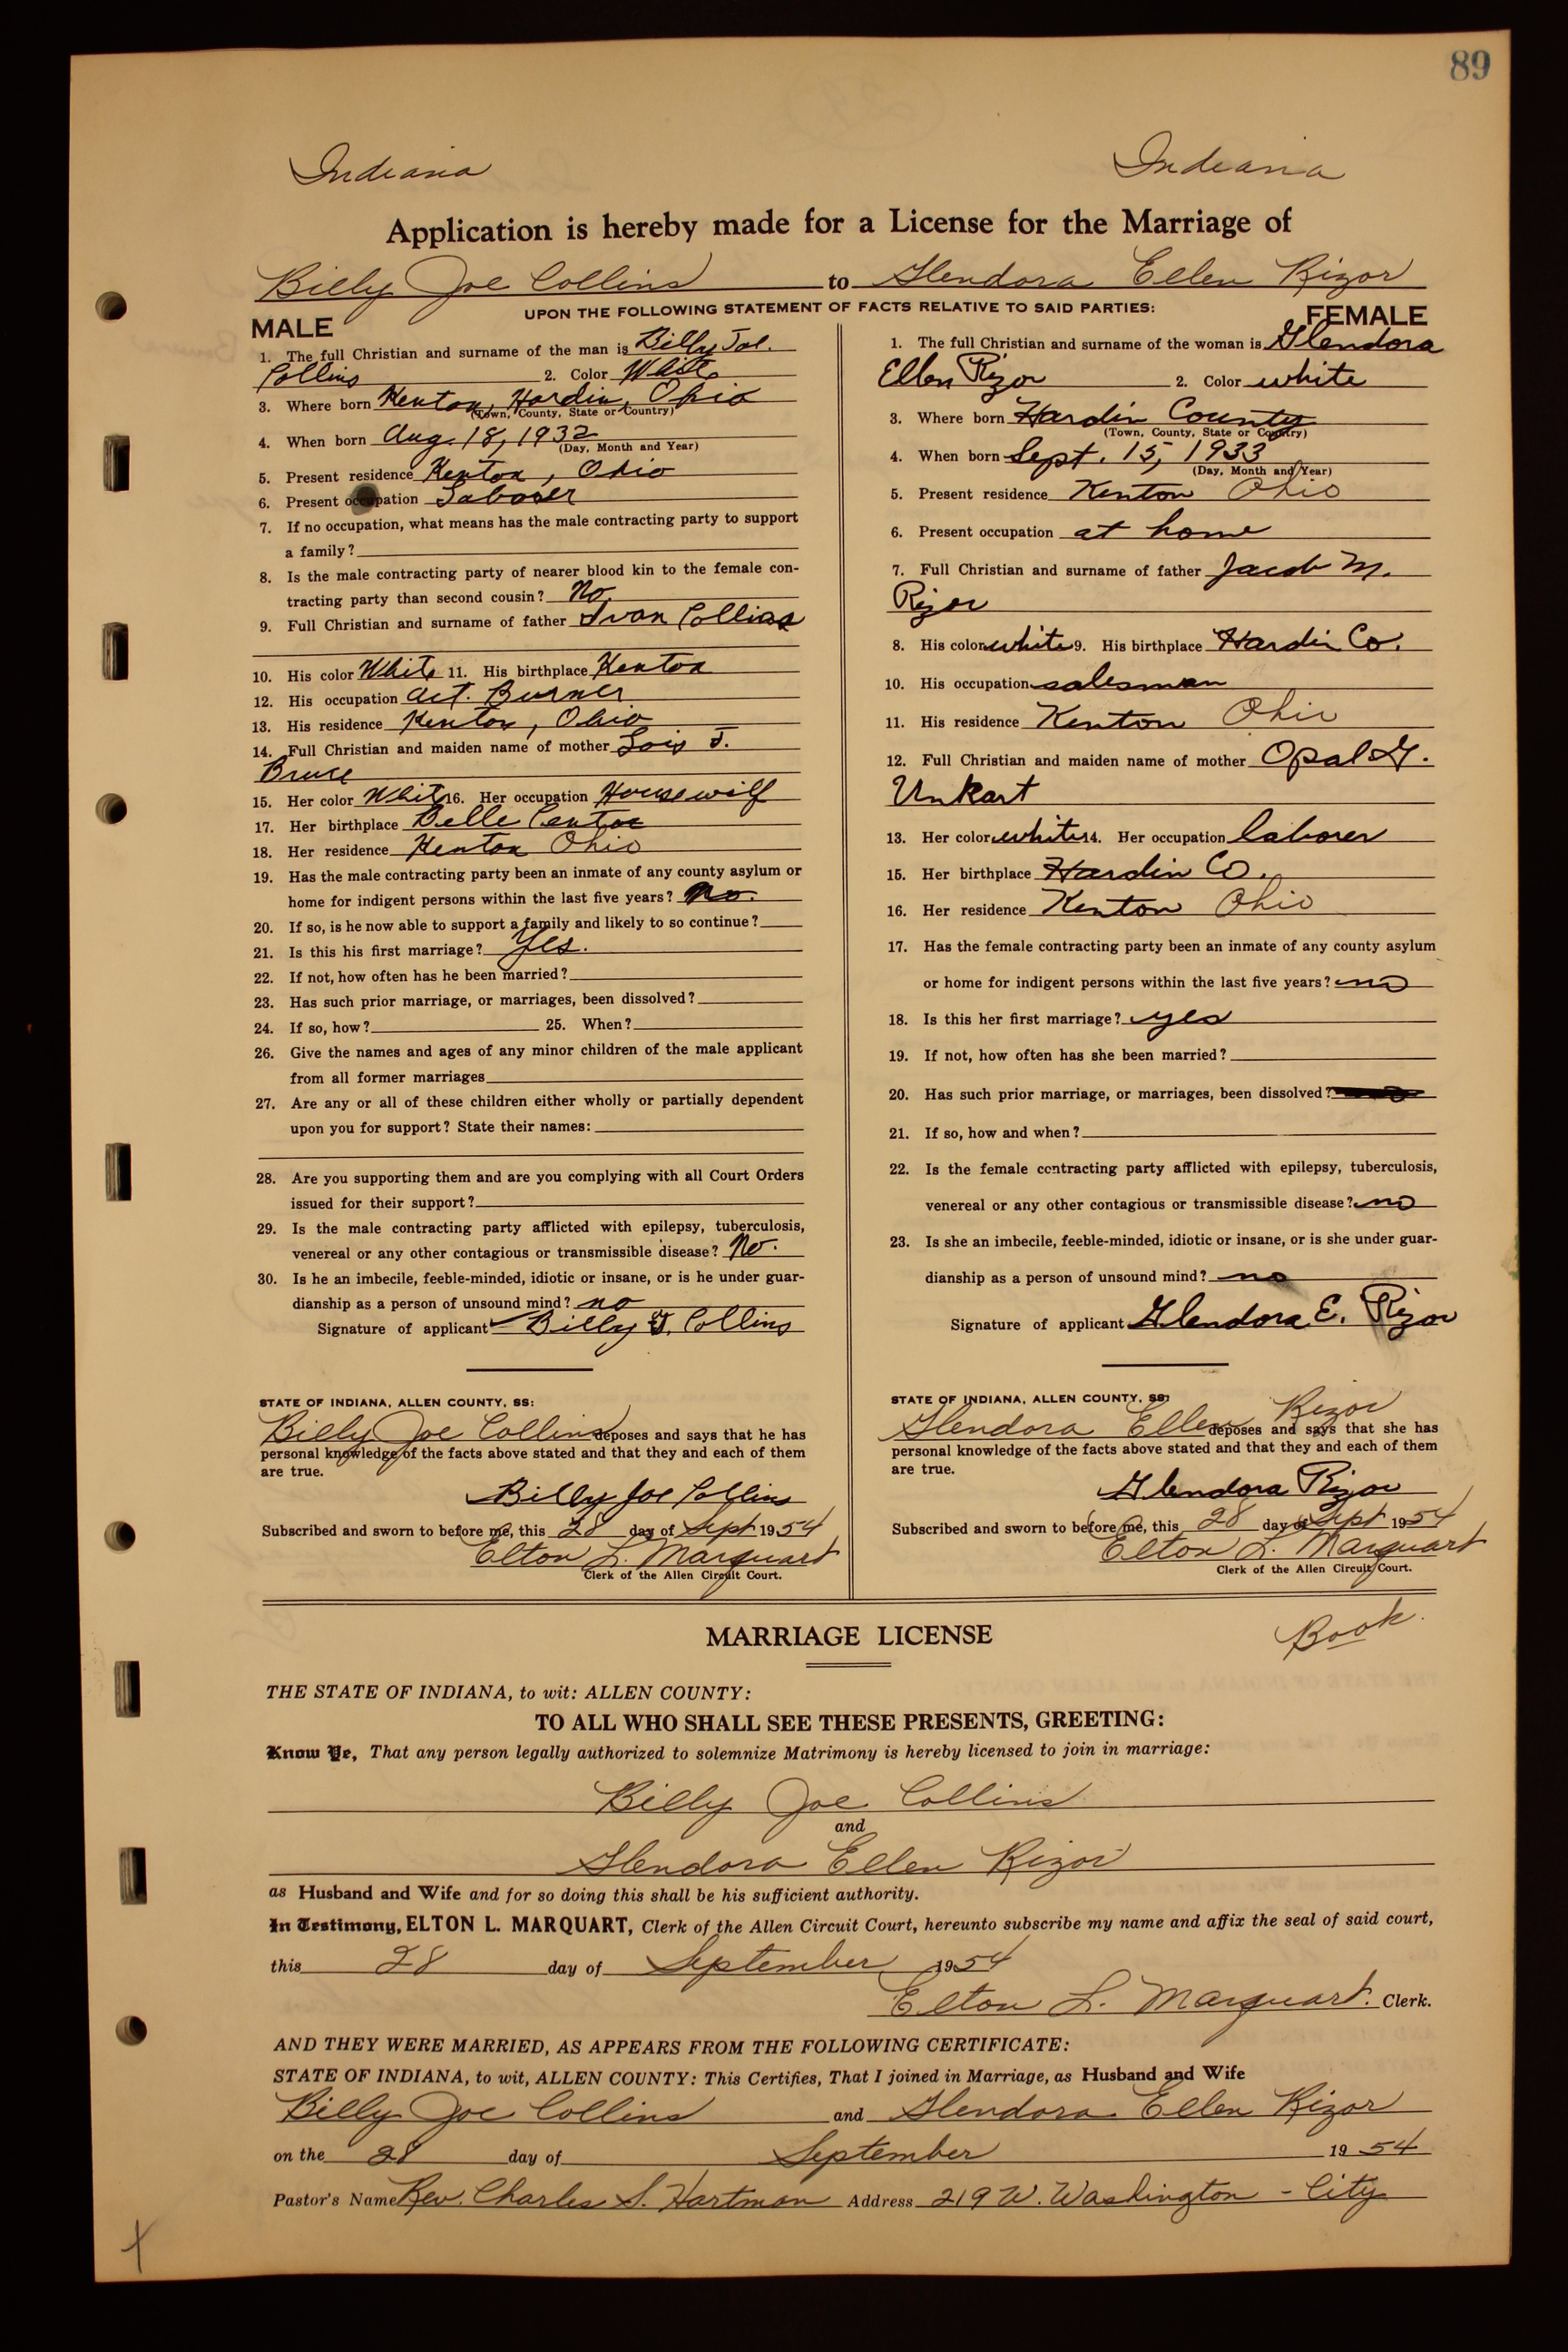 89
Indiana Indiana
Application is hereby made for a License for the Marriage of
Billy Joe Collins to Glendora Ellen Rizor
UPON THE FOLLOWING STATEMENT OF FACTS RELATIVE TO SAID PARTIES:
MALE
1. The full Christian and surname of the man is Billy Joe.
Collins 2. Color White
3. Where born Kenton, Hardin, Ohio
(Town, County, State or Country)
4. When born Aug. 18, 1932
(Day, Month and Year)
5. Present residence Kenton, Ohio
6. Present occupation Laborer
7. If no occupation, what means has the male contracting party to support
a family?
8. Is the male contracting party of nearer blood kin to the female con-
tracting party than second cousin? No.
9. Full Christian and surname of father Ivan Collins
10. His color White 11. His birthplace Kenton
12. His occupation Act. Burner
13. His residence Kenton, Ohio
14. Full Christian and maiden name of mother Lois J.
Bruce
15. Her color White 16. Her occupation Housewife
17. Her birthplace Belle Center
18. Her residence Kenton Ohio
19. Has the male contracting party been an inmate of any county asylum or
home for indigent persons within the last five years? No.
20. If so, is he now able to support a family and likely to so continue?
21. Is this his first marriage? Yes.
22. If not, how often has he been married?
23. Has such prior marriage, or marriages, been dissolved?
24. If so, how? 25. When?
26. Give the names and ages of any minor children of the male applicant
from all former marriages
27. Are any or all of these children either wholly or partially dependent
upon you for support? State their names:
28. Are you supporting them and are you complying with all Court Orders
issued for their support?
29. Is the male contracting party afflicted with epilepsy, tuberculosis,
venereal or any other contagious or transmissible disease? No.
30. Is he an imbecile, feeble-minded, idiotic or insane, or is he under guar-
dianship as a person of unsound mind? no
Signature of applicant Billy J. Collins
STATE OF INDIANA, ALLEN COUNTY, SS:
Billy Joe Collins deposes and says that he has
personal knowledge of the facts above stated and that they and each of them
are true.
Billy Joe Collins
Subscribed and sworn to before me, this 28 day of Sept 1954
Elton L. Marquart
Clerk of the Allen Circuit Court.
FEMALE
1. The full Christian and surname of the woman is Glendora
Ellen Rizor 2. Color white
3. Where born Hardin County
(Town, County, State or Country)
4. When born Sept. 15, 1933
(Day, Month and Year)
5. Present residence Kenton Ohio
6. Present occupation at home
7. Full Christian and surname of father Jacob M.
Rizor
8. His color white 9. His birthplace Hardin Co.
10. His occupation salesman
11. His residence Kenton Ohio
12. Full Christian and maiden name of mother Opal G.
Unkart
13. Her color white 14. Her occupation laborer
15. Her birthplace Hardin Co.
16. Her residence Kenton Ohio
17. Has the female contracting party been an inmate of any county asylum
or home for indigent persons within the last five years? no
18. Is this her first marriage? yes
19. If not, how often has she been married?
20. Has such prior marriage, or marriages, been dissolved?
21. If so, how and when?
22. Is the female contracting party afflicted with epilepsy, tuberculosis,
venereal or any other contagious or transmissible disease? no
23. Is she an imbecile, feeble-minded, idiotic or insane, or is she under guar-
dianship as a person of unsound mind? no
Signature of applicant Glendora E. Rizor
STATE OF INDIANA, ALLEN COUNTY, SS:
Glendora Ellen Rizor deposes and says that she has
personal knowledge of the facts above stated and that they and each of them
are true.
Glendora Rizor
Subscribed and sworn to before me, this 28 day of Sept 1954
Elton L. Marquart
Clerk of the Allen Circuit Court.
MARRIAGE LICENSE
Book.
THE STATE OF INDIANA, to wit: ALLEN COUNTY:
TO ALL WHO SHALL SEE THESE PRESENTS, GREETING:
Know Ye, That any person legally authorized to solemnize Matrimony is hereby licensed to join in marriage:
Billy Joe Collins
and
Glendora Ellen Rizor
as Husband and Wife and for so doing this shall be his sufficient authority.
In Testimony, ELTON L. MARQUART, Clerk of the Allen Circuit Court, hereunto subscribe my name and affix the seal of said court,
this 28 day of September 1954
Elton L. Marquart. Clerk.
AND THEY WERE MARRIED, AS APPEARS FROM THE FOLLOWING CERTIFICATE:
STATE OF INDIANA, to wit, ALLEN COUNTY: This Certifies, That I joined in Marriage, as Husband and Wife
Billy Joe Collins and Glendora Ellen Rizor
on the 28 day of September 19 54
Pastor's Name Rev. Charles S. Hartman Address 219 W. Washington - City